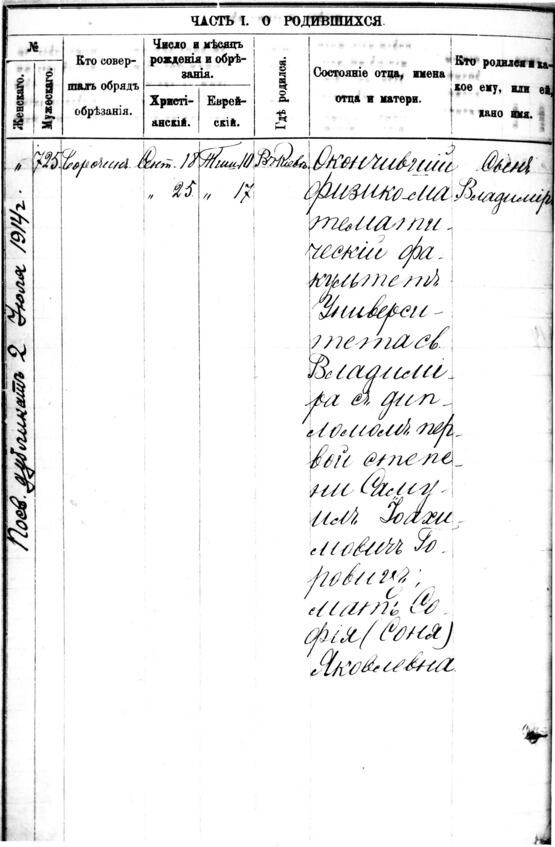 ЧАСТЬ I. О РОДИВШИХСЯ.
№
Женскаго.
Мужескаго.
Кто совер-
шалъ обрядъ
обрѣзанія.
Число и мѣсяцъ
рожденія и обрѣ-
занія.
Христі-
анскій.
Еврей-
скій.
Гдѣ родился.
Состояніе отца, имена
отца и матери.
Кто родился и ка-
кое ему, или ей,
дано имя.
„ 725 Сорочкинъ Сент. 18 Тиш. 10 В. Кіевѣ Окончившій Сынъ
„ 25 „ 17 физико-ма- Владиміръ
темати-
ческій фа-
культетъ
Универси-
тета св.
Владимі-
ра съ дип-
ломомъ пер-
вой степе-
ни Саму-
илъ Іоахи-
мовичъ Го-
ровичъ;
мать Со-
фія (Соня)
Яковлевна
дубликатъ 2 Іюля 1914 г.